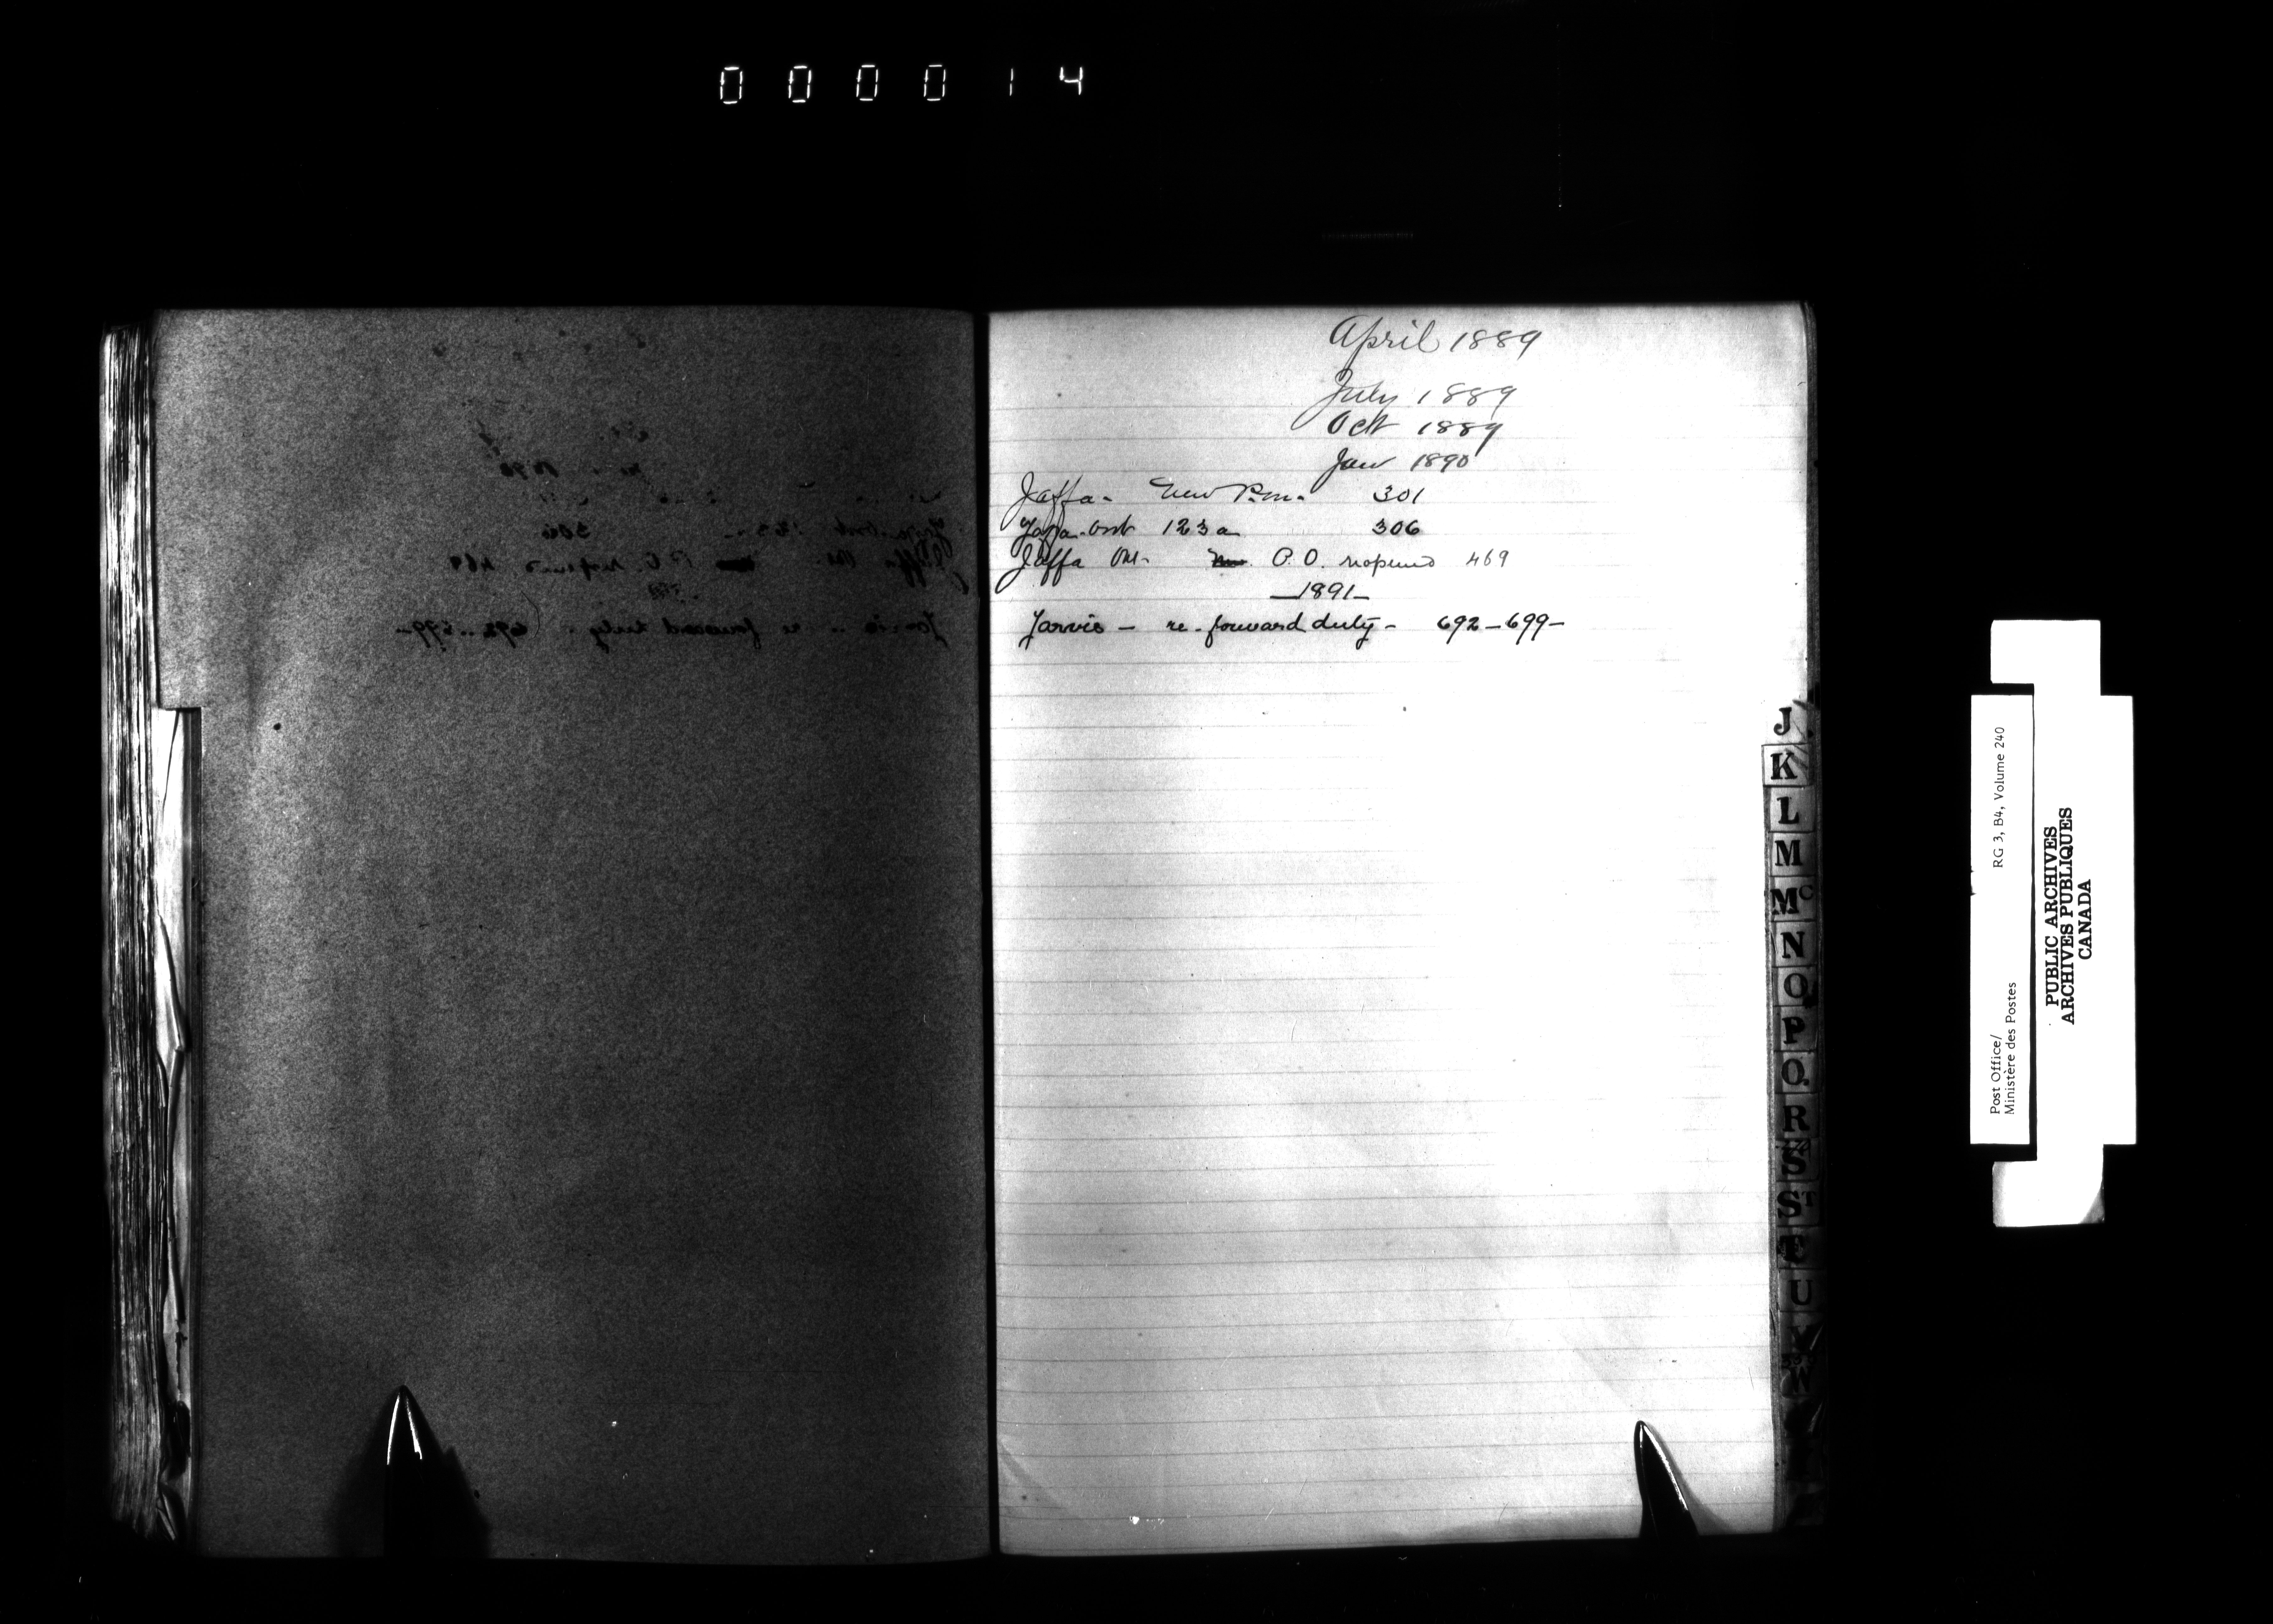 000014
April 1889
July 1889
Oct 1889
Jan 1890
Jaffa - New P.M. 301
Jaffa Ont 123a 306
Jaffa Ont - P.O. reopened 469
1891
Jarvis - re-forward duty - 692-699-
J
K
L
M
Mc
N
O
P
Q
R
S
St
T
U
V
W
Post Office/
Ministère des Postes
RG 3, B4, Volume 240
PUBLIC ARCHIVES
ARCHIVES PUBLIQUES
CANADA